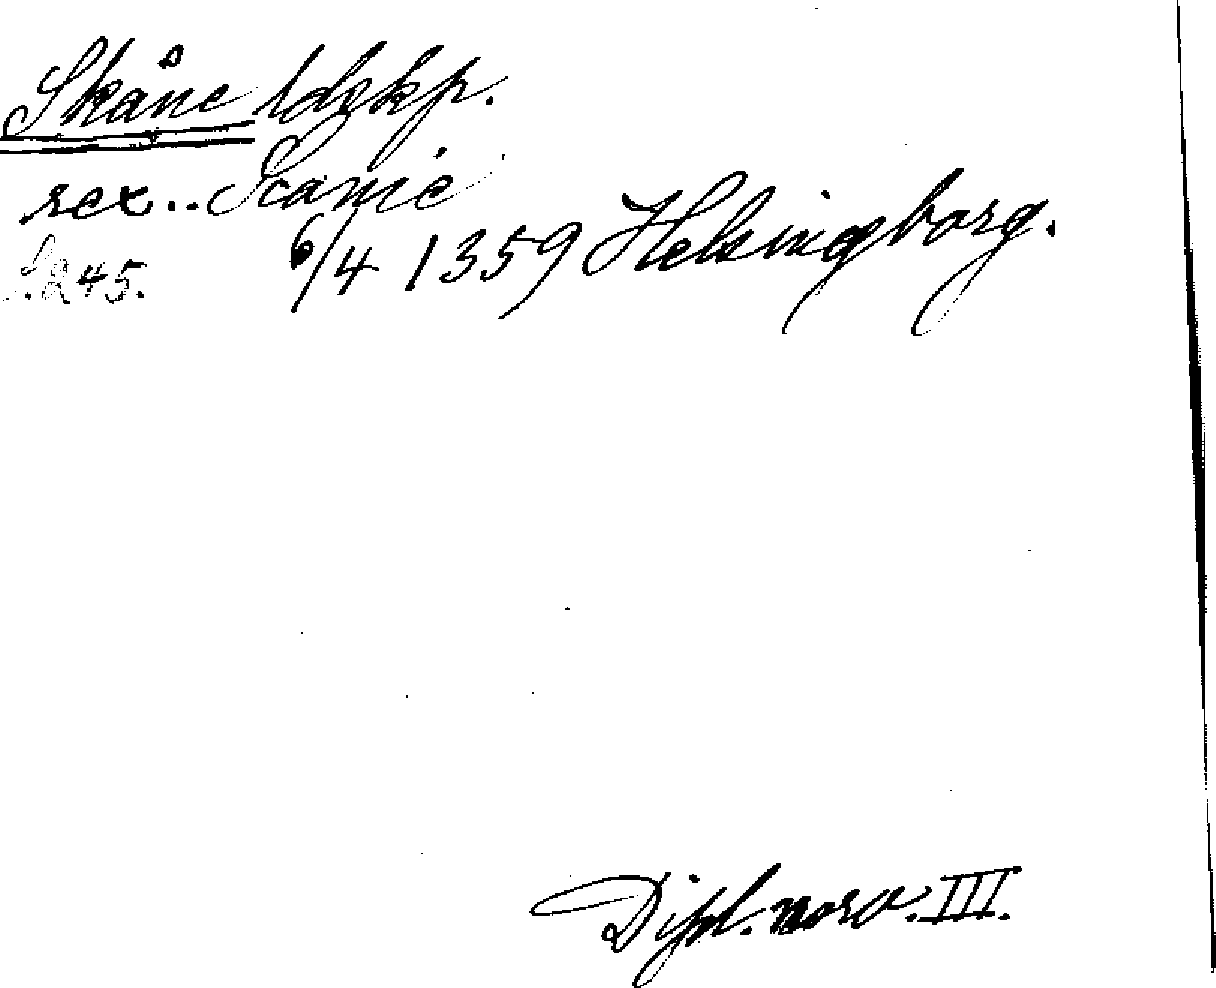 Skåne ldskp.
rex.. Scanie
S. 245. 6/4 1359 Helsingborg.
Dipl. norv. III.